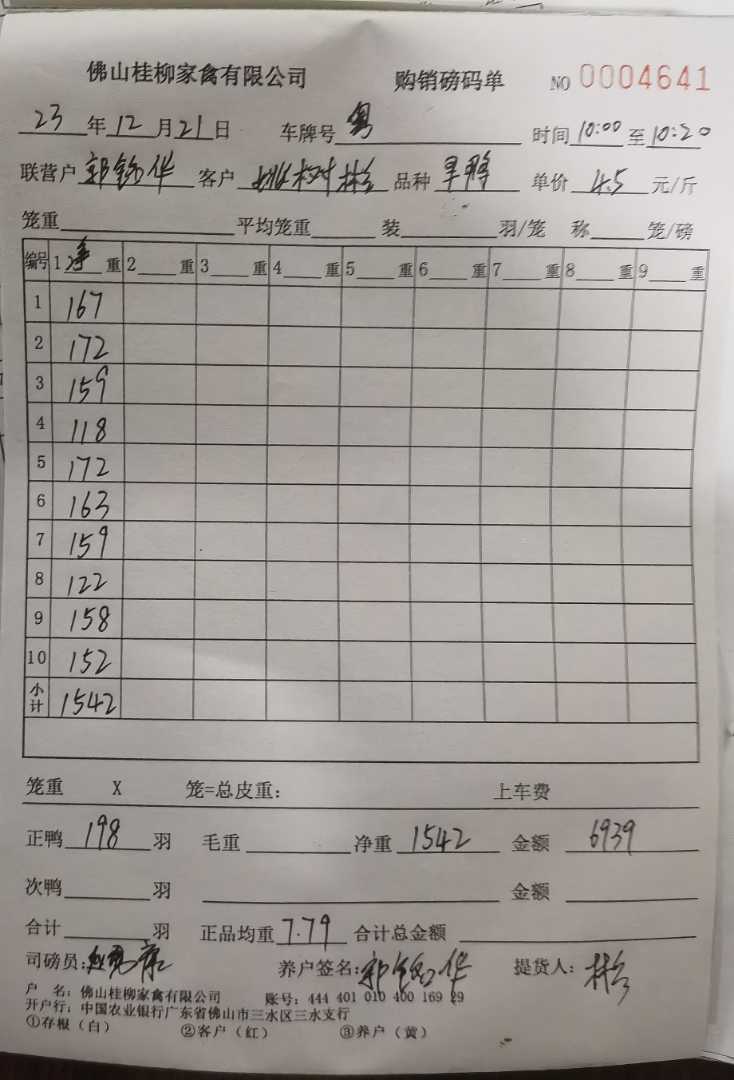 佛山桂柳家禽有限公司 购销磅码单 NO 0004641
23 年 12 月 21 日 车牌号 粤 时间 10:00 至 10:20
联营户 郭锦华 客户 姚树彬 品种 旱鸭 单价 4.5 元/斤
笼重 平均笼重 装 羽/笼 称 笼/磅
编号 1 净 重 2 重 3 重 4 重 5 重 6 重 7 重 8 重 9 重
1 167
2 172
3 159
4 118
5 172
6 163
7 159
8 122
9 158
10 152
小计 1542
笼重 X 笼=总皮重: 上车费
正鸭 198 羽 毛重 净重 1542 金额 6939
次鸭 羽 金额
合计 羽 正品均重 7.79 合计总金额
司磅员: 养户签名: 郭锦华 提货人: 彬
户 名: 佛山桂柳家禽有限公司 账号: 444 401 010 400 169 29
开户行: 中国农业银行广东省佛山市三水区三水支行
①存根（白） ②客户（红） ③养户（黄）